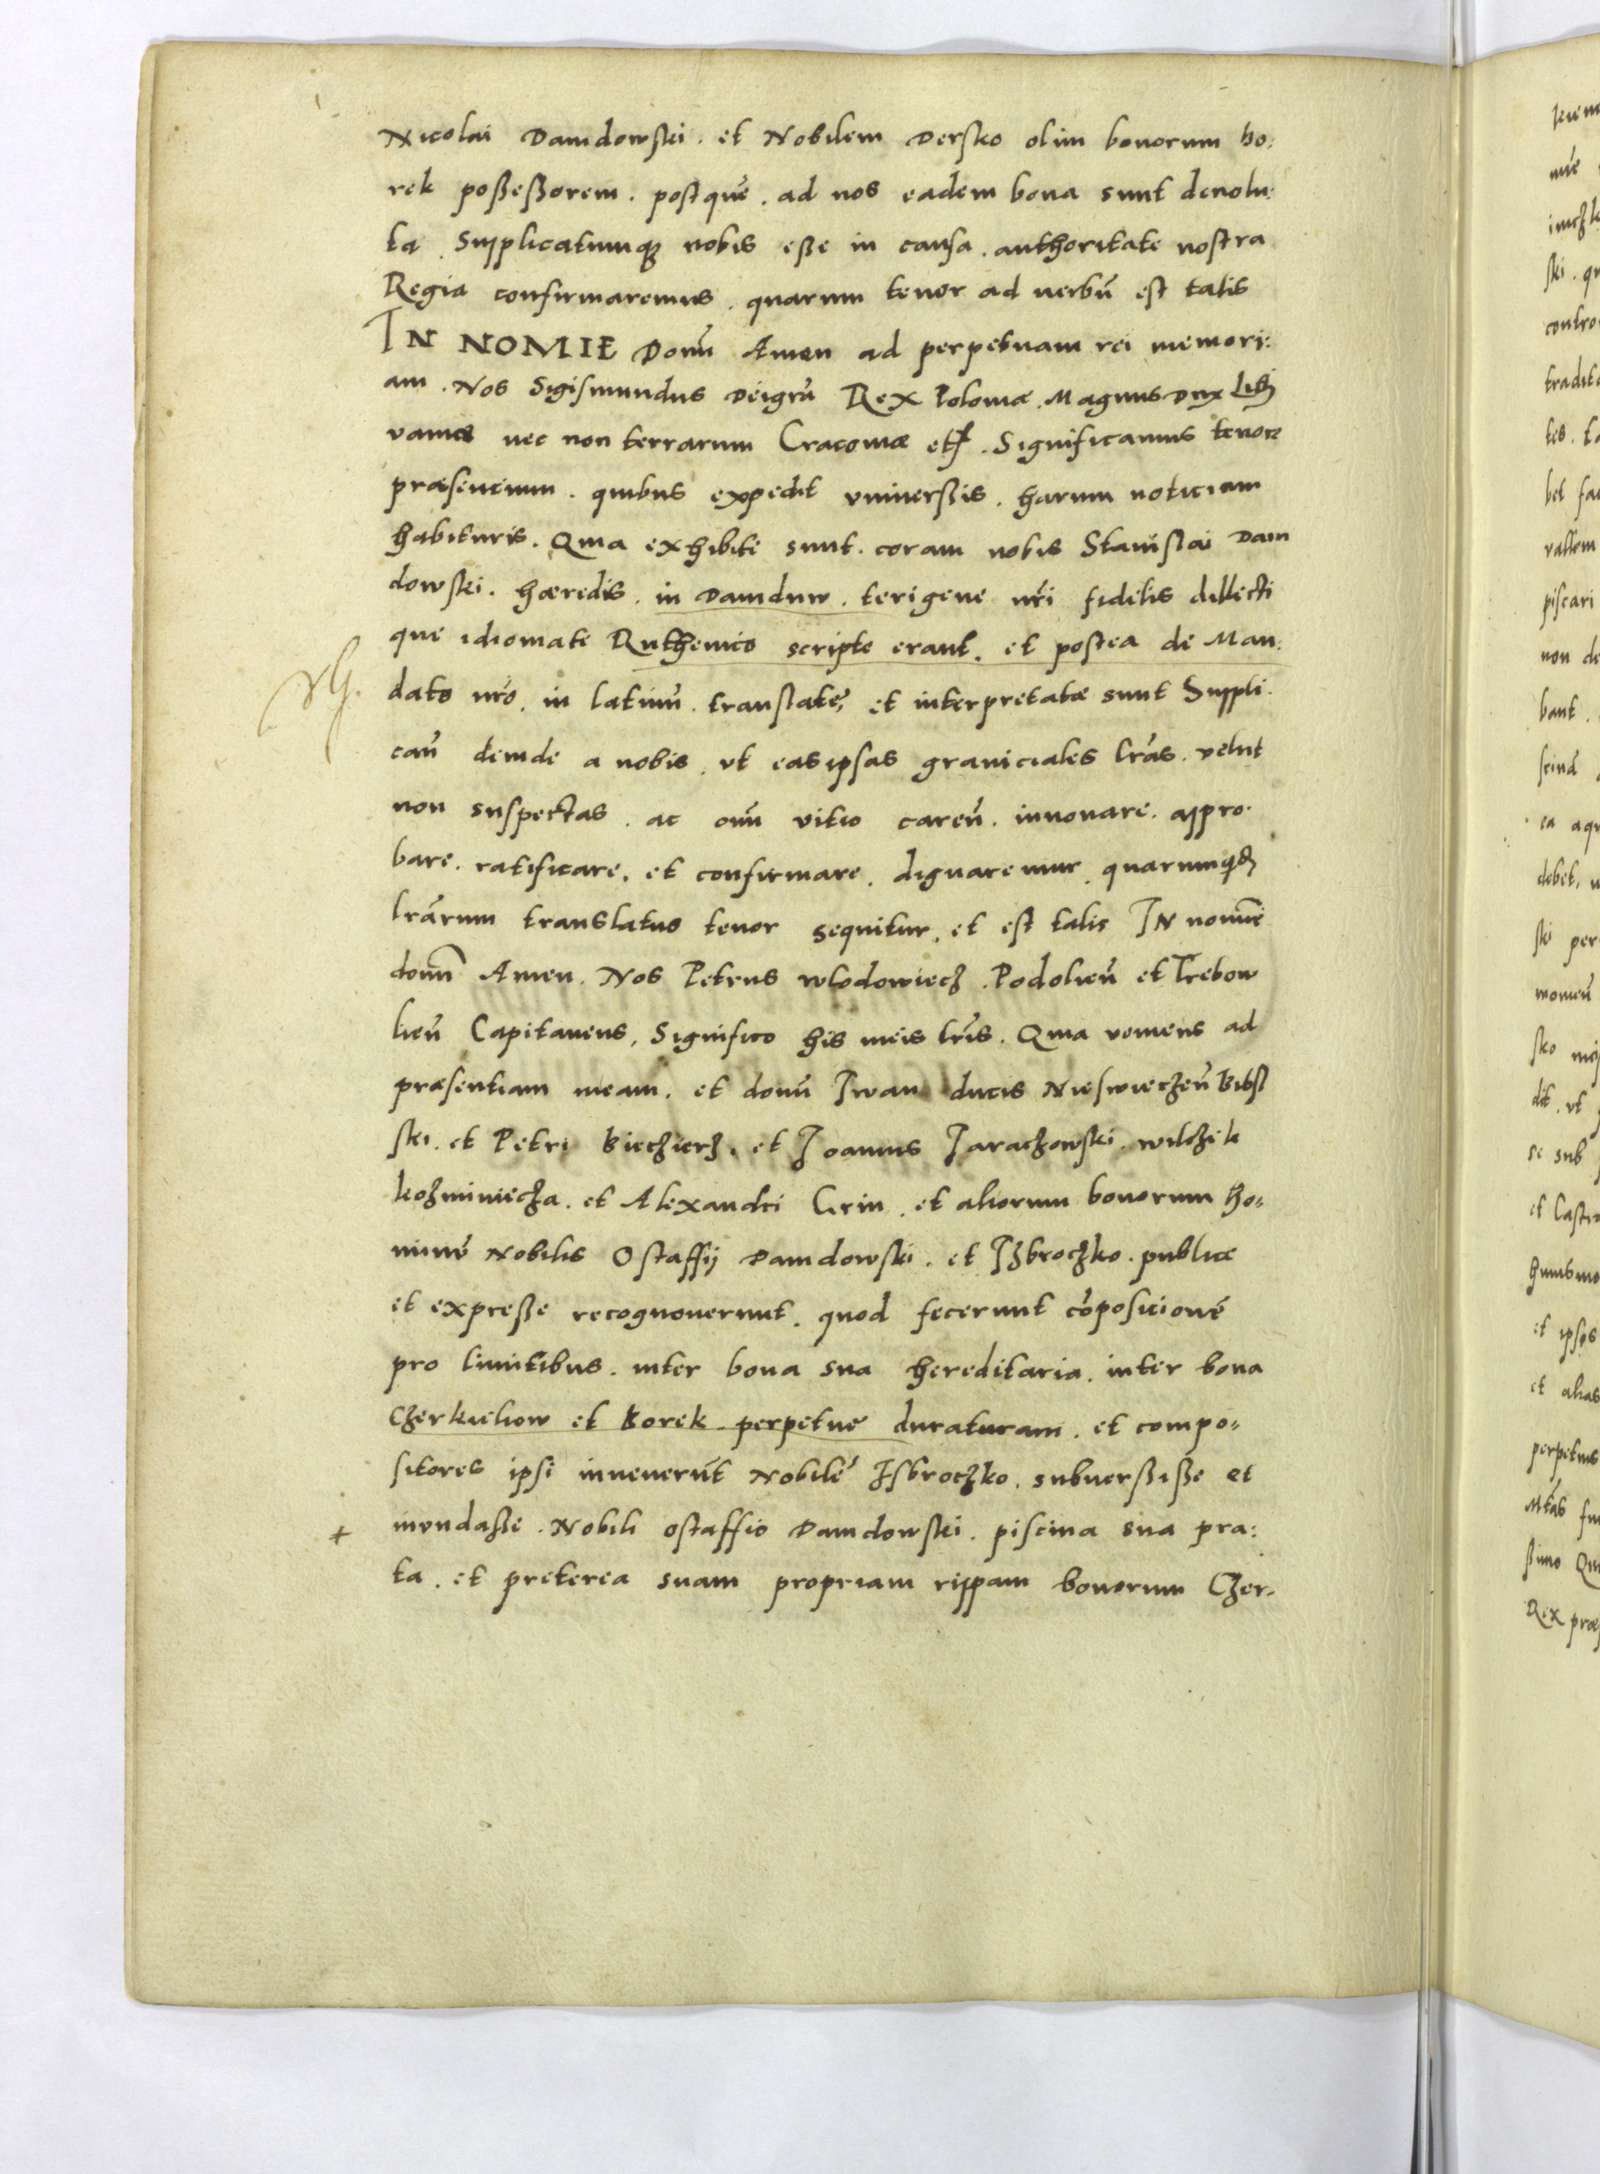 Nicolai Dawidowski. et Nobilem Dersko olim bonorum bo:
rek poßeßorem. postquē. ad nos eadem bona sunt deuolu:
ta. Supplicatumq; nobis eße in causa. authoritate nostra
Regia confirmaremus. quarum tenor ad uerbū est talis
IN NOMIE Domī Amen ad perpetuam rei memori:
am. Nos Sigismundus Dei grā Rex Poloniæ. Magnus Dux Lith
vaniæ nec non terrarum Cracoviæ etc. Significamus tenore
præsencium. quibus expedit vniuersis. harum noticiam
habituris. Quia exhibite sunt. coram nobis Stanislai Dawi
dowski. hæredis. in Dawiduw. terigene nr̃i fidelis dillecti
que idiomate Ruthenico scripte erant. et postea de Man:
dato nr̃o. in latinū. translatę, et interpretatæ sunt Suppli.
can̄ deinde a nobis. vt eas ipsas graniciales lrãs. velut
non suspectas. ac omī vitio caren̄. innouare. appro.
bare. ratificare. et confirmare. dignaremur. quarumqdē
lrãrum translatus tenor sequitur. et est talis IN nomīe
domī Amen. Nos Petrus wlodowiecz. Podolien̄ et Trebow
lien̄ Capitaneus, Significo his meis lrīs. Quia veniens ad
præsentiam meam. et domī Iwan ducis Nieswieczen̄ Bibst
ski. et Petri Bieczierz. et Joannis Jaraczowski. wilczik
kozminiecza. et Alexandri Cirin. et aliorum bonorum ho=
minū Nobilis Ostaffij Dawidowski. et Izbroczko. publice
et expreße recognouerunt. quod fecerunt cōposicionē
pro limitibus. inter bona sua hereditaria. inter bona
Czerkiehow et Borek perpetue duraturam. et compo=
sitores ipsi inuenerūt Nobilē Isbroczko. subuersiße et
inundaße. Nobili ostaffio Dawidowski. piscina sua pra:
ta. et preterea suam propriam rippam bonorum Czer-